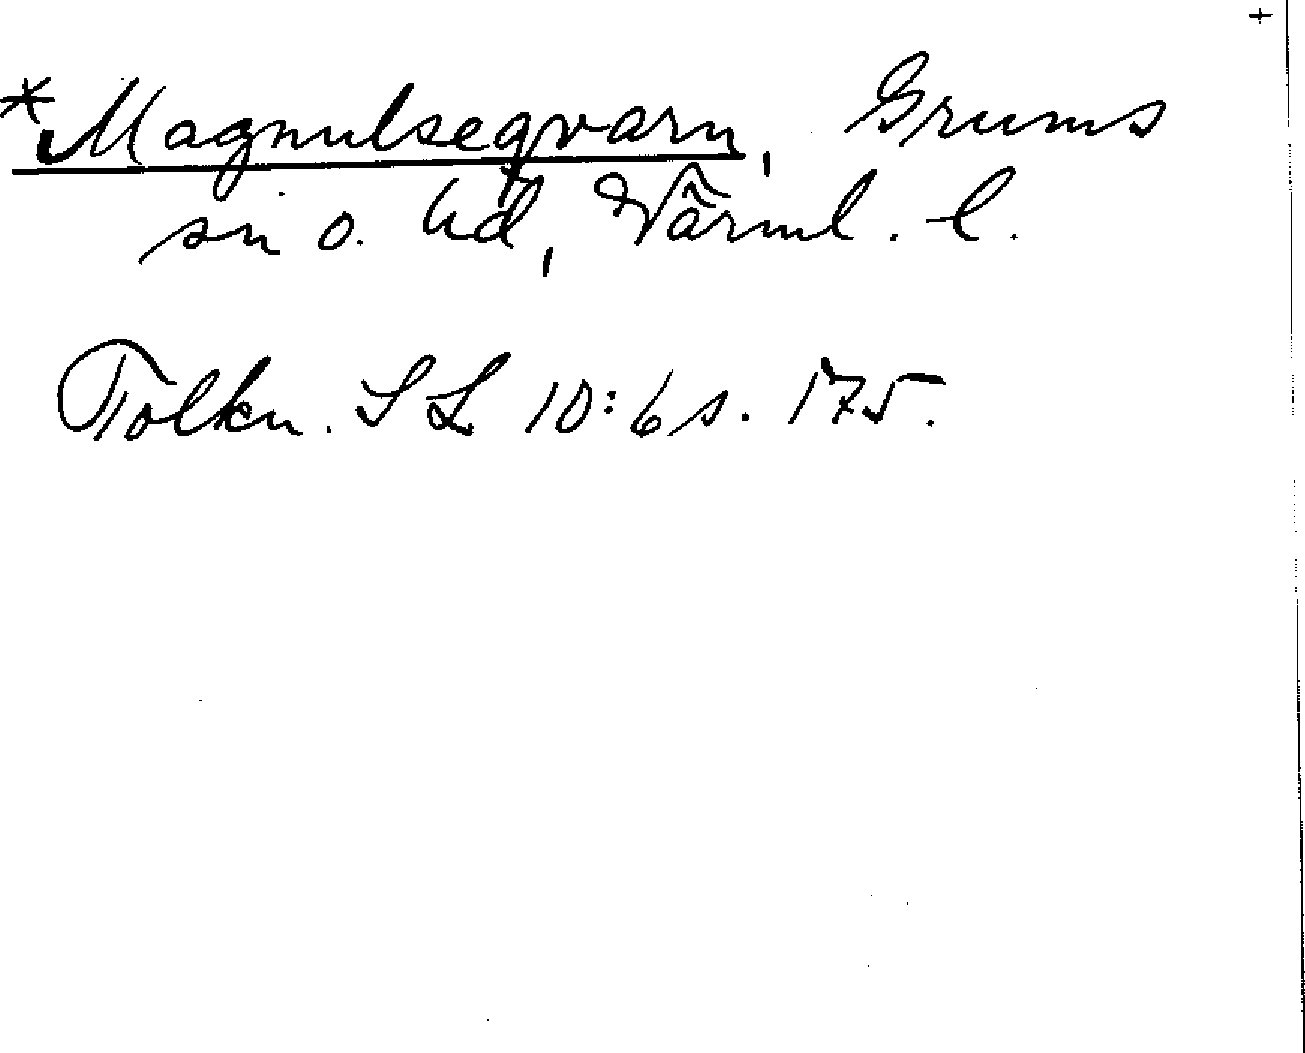 +
*Magnulseqvarn, Grums
sn o. hd, Värml. l.
Tolkn. SL 10:6 s. 175.